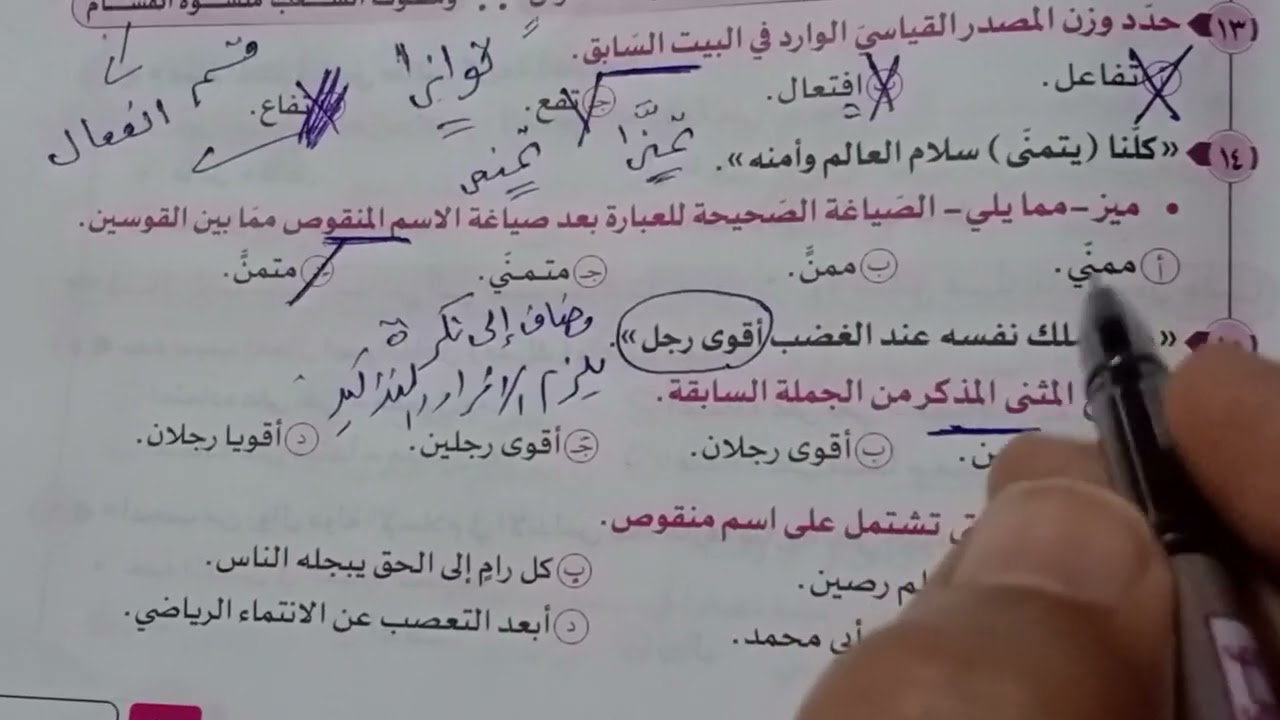 ١٣) حدّد وزن المصدر القياسيَ الوارد في البيت السَابق.
أ تفاعل. ب افتعال. جـ تفع. د تفاع.
توانِيًا
الفعال
١٤) «كلّنا (يتمنَى) سلام العالم وأمنه».
• ميز -مما يلي- الصَياغة الصَحيحة للعبارة بعد صياغة الاسم المنقوص ممَا بين القوسين.
أ ممنَّي. ب ممنٍّ. جـ متمنَّي. د متمنٍّ.
« لك نفسه عند الغضب أقوى رجل».
مضاف إلى نكرة
يلزم الإفراد والتذكير
المثنى المذكر من الجملة السابقة.
ب أقوى رجلان. جـ أقوى رجلين. د أقويا رجلان.
تشتمل على اسم منقوص.
رصين. ب كل رامٍ إلى الحق يبجله الناس.
أبي محمد. د أبعد التعصب عن الانتماء الرياضي.